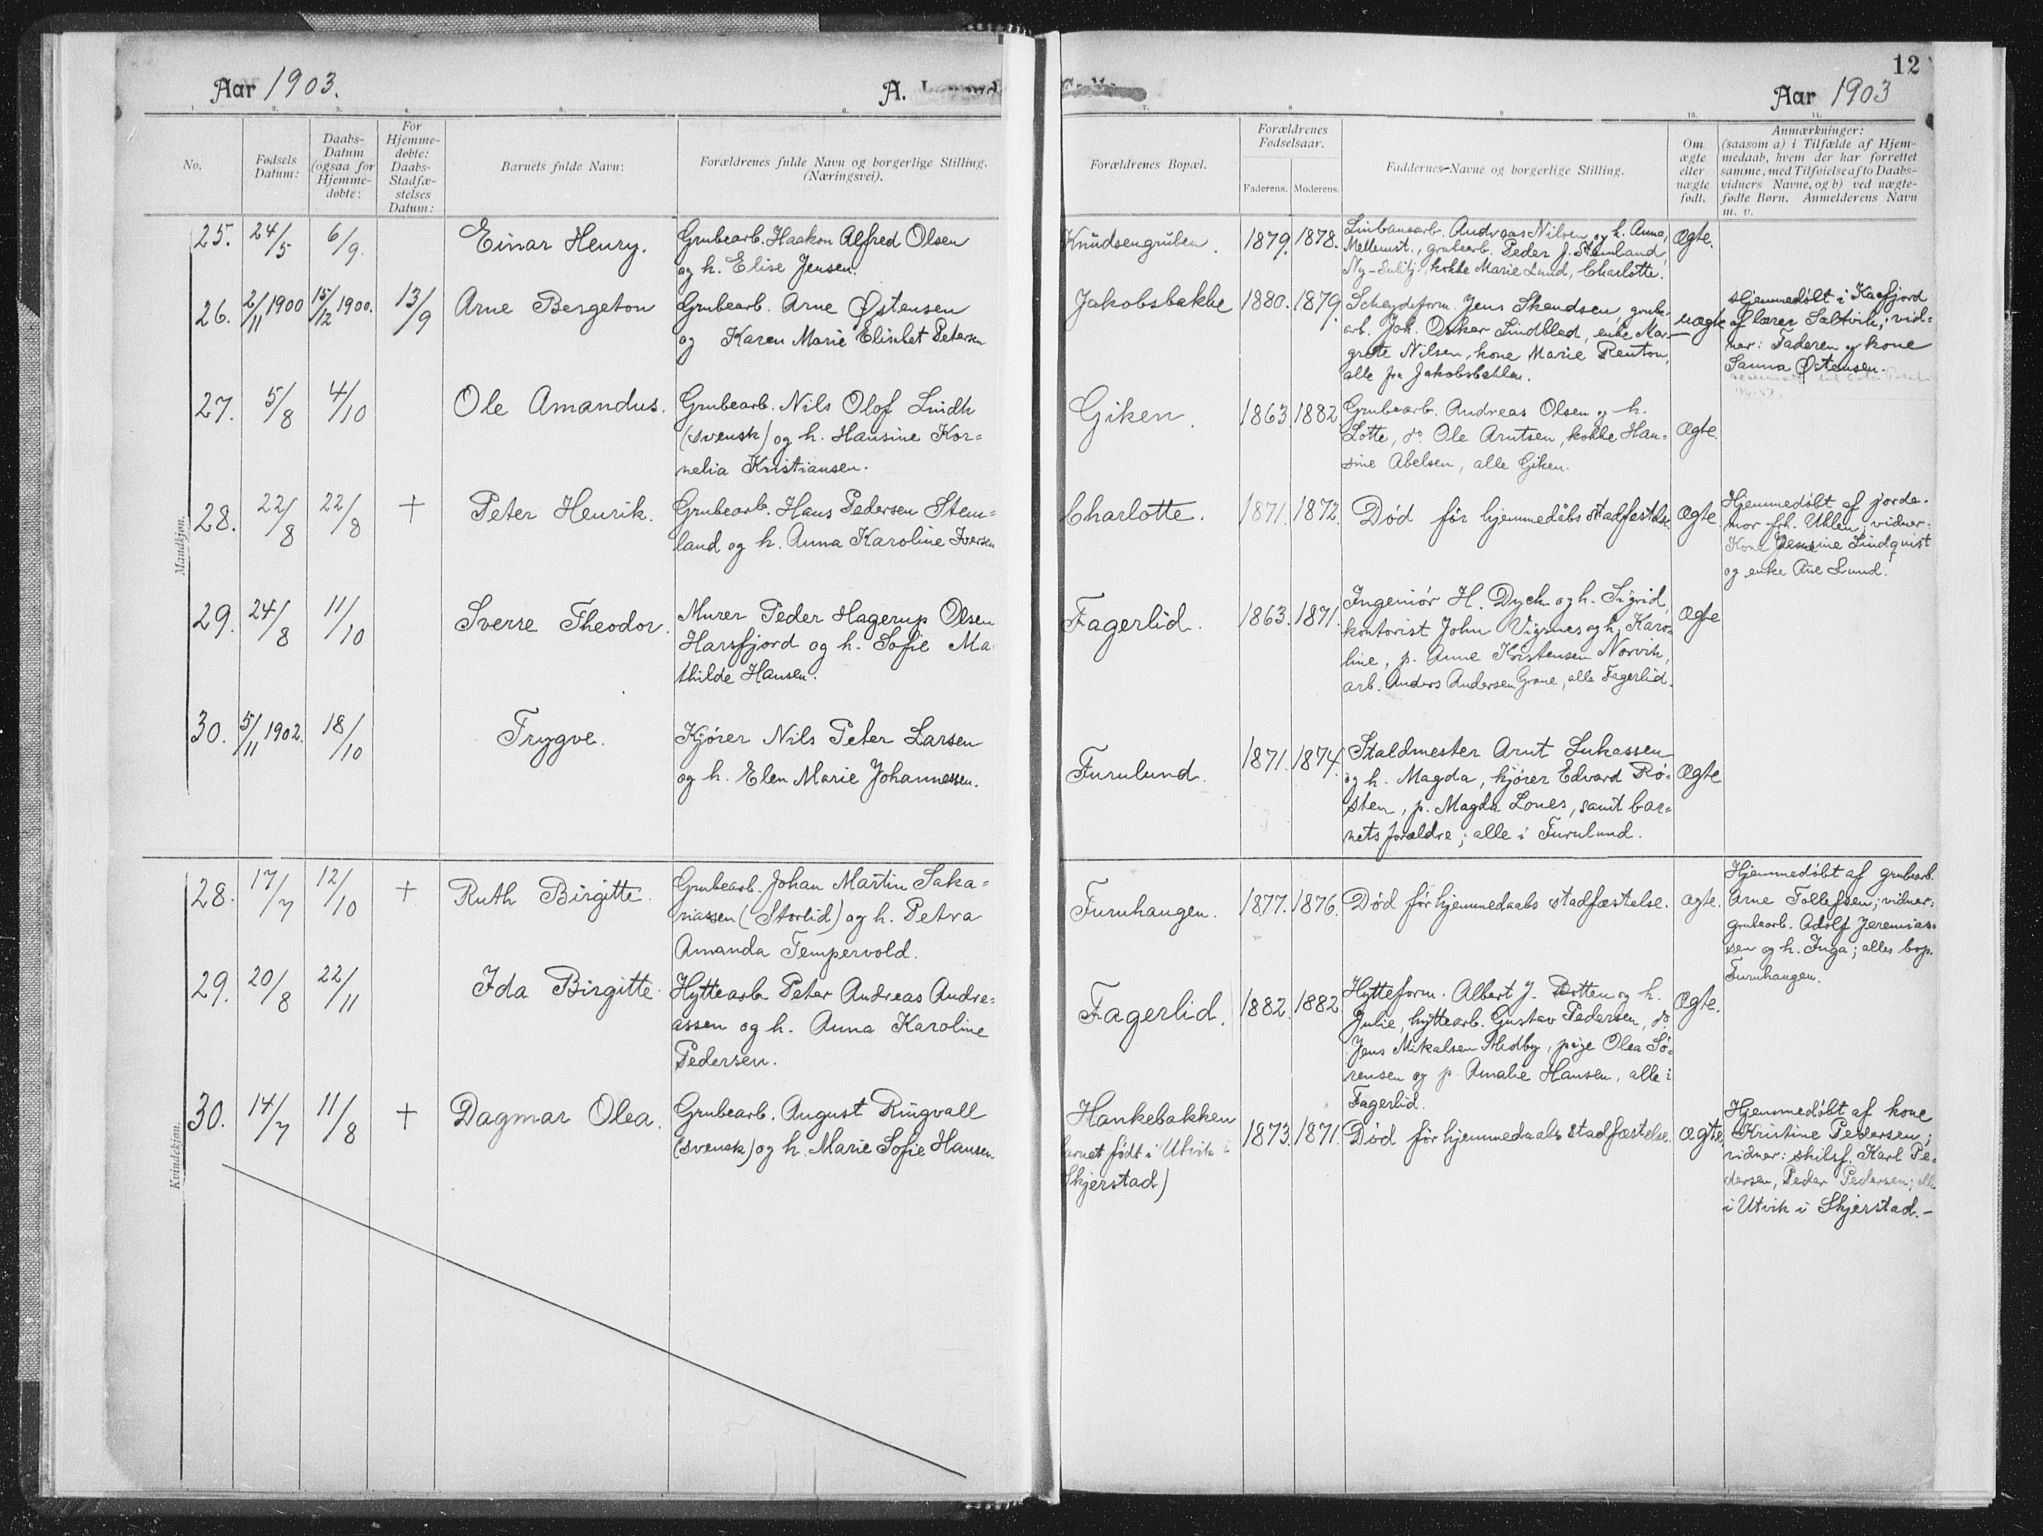 Aar 1903.
A.
12
Aar 1903
No.
Fødsels Datum:
Daabs-Datum (ogsaa for Hjemmedøbte:
For Hjemmedøbte: Daabs-Stadfæstelses Datum:
Barnets fulde Navn:
Forældrenes fulde Navn og borgerlige Stilling. (Næringsvei).
Forældrenes Bopæl.
Forældrenes Fødselsaar.
Faderens.
Moderens.
Faddernes Navne og borgerlige Stilling.
Om ægte eller uægte født.
Anmærkninger:
(saasom a) i Tilfælde af Hjem-
medaab, hvem der har forrettet
samme, med Tilføielse af to Daabs-
vidners Navne, og b) ved uægte-
fødte Børn. Anmelderens Navn
m. v.
Mandkjøn.
25. 24/5 6/9. Einar Henry.
Grubearb. Haakon Alfred Olsen
og h. Elise Jensen.
Knudsengruben. 1879. 1878.
Linbanearb. Andreas Nilsen og h. Anna,
Mellemst., grubearb. Peder J. Stemland,
Ny-Sulitj., kokke Marie Lund, Charlotte.
Ægte.
26. 2/11 1900 15/12 1900. 13/9 Arne Bergeton
Grubearb. Arne Østensen
og Karen Marie Elisabet Petersen
Jakobsbakke 1880. 1879.
Scheydeform. Jens Skendsen, grube-
arb. Joh. Oskar Lindblad, enke Mar-
grete Nilsen, kone Marie Renton,
alle fra Jakobsbakken.
uægte
Hjemmedøbt i Kaafjord
af lærer Saltvik; vid-
ner: Faderen og kone
Sanna Østensen.
27. 5/8 4/10 Ole Amandus.
Grubearb. Nils Olof Lindh
(svensk) og h. Hansine Kor-
nelia Kristiansen.
Giken. 1863 1882
Grubearb. Andreas Olsen og h.
Lotte, do. Ole Arntsen, kokke Han-
sine Abelsen, alle Giken.
Ægte.
28. 22/8 22/8 † Peter Henrik.
Grubearb. Hans Pedersen Stem-
land og h. Anna Karoline Iversen
Charlotte. 1871. 1872.
Død før hjemmedåbs stadfæstelse
Ægte.
Hjemmedøbt af jorde-
mor frk. Uhlen; vidner:
Kone Jensine Lindquist
og enke Ane Lund.
29. 24/8 11/10 Sverre Theodor.
Murer Peder Hagerup Olsen
Harsfjord og h. Sofie Ma-
thilde Hansen.
Fagerlid. 1863. 1871.
Ingeniør H. Dyck og h. Sigrid,
kontorist John Vigsnes og h. Karo-
line, p. Anne Kristensen Norvik,
arb. Anders Andersen Grane, alle Fagerlid.
Ægte
30. 5/11 1902. 18/10 Trygve.
Kjører Nils Peter Larsen
og h. Elen Marie Johannessen.
Furulund. 1871. 1874.
Staldmester Arnt Lukassen
og h. Magda, kjører Edvard Rø-
sten, p. Magda Lones, samt bar-
nets forældre; alle i Furulund.
Ægte
Kvindekjøn.
28. 17/7 12/10 † Ruth Birgitte.
Grubearb. Johan Martin Saka-
riassen (Storlid) og h. Petra
Amanda Tempervold.
Furuhaugen. 1877. 1876.
Død før hjemmedaabs stadfæstelse.
Ægte.
Hjemmedøbt af grubearb.
Arne Tollefsen; vidner:
grubearb. Adolf Jeremias-
sen og h. Inga; alles bop.
Furuhaugen.
29. 20/8 22/11 Ida Birgitte.
Hyttearb. Peter Andreas Andre-
assen og h. Anna Karoline
Pedersen.
Fagerlid. 1882. 1882.
Hytteform. Albert J. Dotten og h.
Julie, hyttearb. Gustav Pedersen, do.
Jens Mikalsen Midby, pige Olea Sø-
rensen og p. Amalie Hansen, alle i
Fagerlid.
Ægte.
30. 14/7 11/8 † Dagmar Olea.
Grubearb. August Ringvall
(svensk) og h. Marie Sofie Hansen.
Hankebakken
barnet født i Utvik i
Skjerstad)
1873. 1871.
Død før hjemmedaabs stadfæstelse.
Ægte.
Hjemmedøbt af kone
Kristine Pedersen;
vidner: skilsf. Karl Pe-
dersen, Peder Pedersen; alle
i Utvik i Skjerstad.-